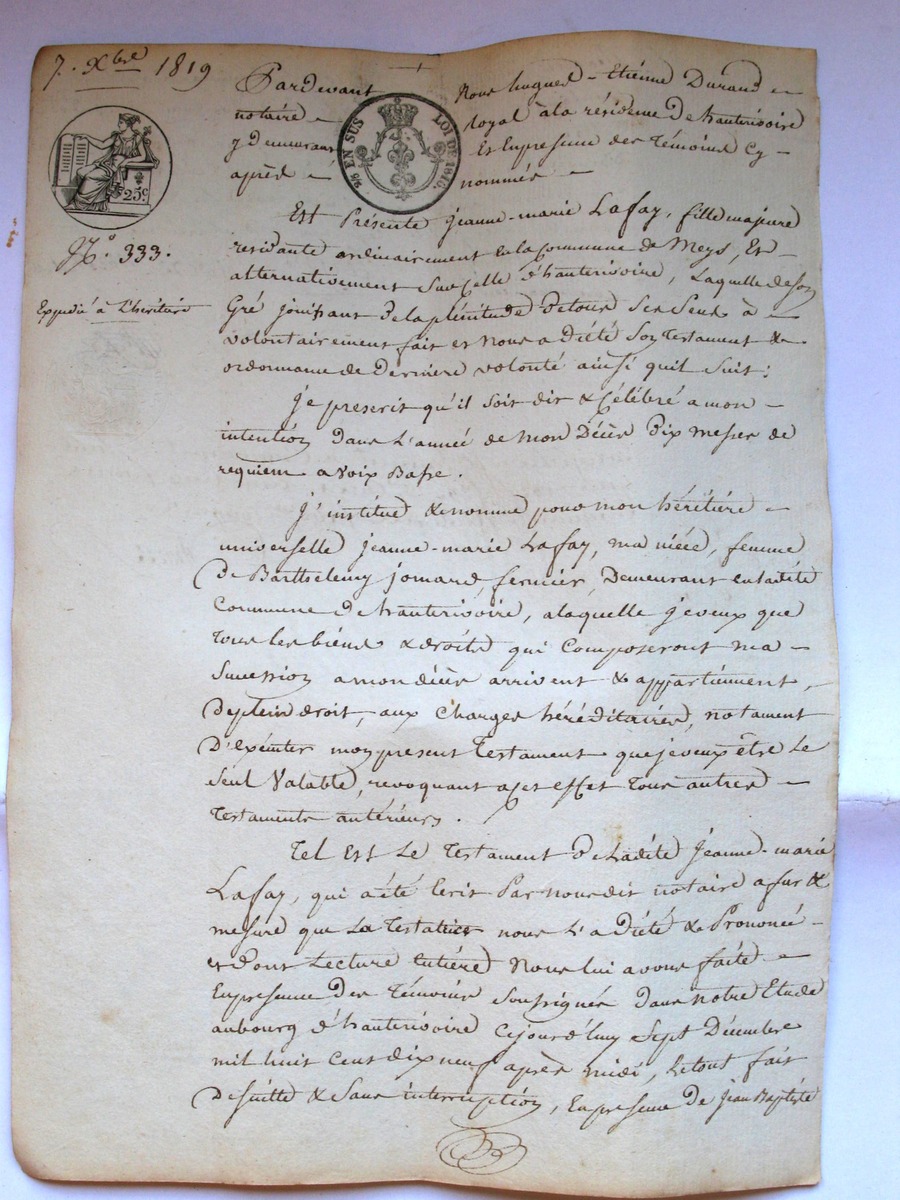 7. Xbre 1819
Pardevant Nous hugues-Etienne Durand
notaire royal à la résidence de hauterivoire
y demeurant Et En presence des Témoins Cy-
après nommés
EN SUS LOI DE 1816.
25c
No. 333.
Expédié à L'héritière
Est Présente jeanne-marie Lafay, fille majeure
residante ordinairement en la Commune de Meys, Et
alternativement Sur Celle d'hauterivoire, Laquelle de son
Gré jouissant de la plénitude de tous Ses Sens à
volontairement fait et nous a dicté Son Testament &
ordonnance de derniere volonté ainsi quil Suit:
je prescrit qu'il soit dit & Célébré a mon
intention dans L'année de mon Décès Dix messes de
requiem a voix Basse.
j'institue & nomme pour mon héritière
universelle jeanne-marie Lafay, ma nièce, femme
de Barthelemy jomard, fermier, Demeurant en ladite
Commune d'hauterivoire, a laquelle je veux que
Tous les biens & droits qui Composeront ma
Succession a mon décès arrivent & appartiennent,
de plein droit, aux Charges héréditaires, notament
D'exécuter mon present Testament que je veux être Le
Seul Valable, revoquant a cet effet Tous autres
Testaments antérieurs.
Tel Est Le Testament de Ladite jeanne-marie
Lafay, qui a été Ecrit Par nous dit notaire a fur &
mesure que La Testatrice nous L'a dicté & Prononcé
et dont Lecture Entière Nous lui avons faite
En presence des Témoins Soussignés dans notre Etude
au bourg d'hauterivoire cejourd'huy Sept Décembre
mil huit Cent dix neuf après midi, Le tout fait
de suitte & Sans interruption, En presence de jean Baptiste